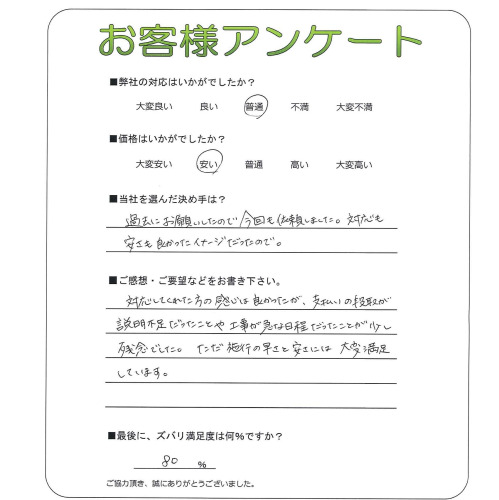 お客様アンケート
■弊社の対応はいかがでしたか?
大変良い 良い 普通 不満 大変不満
■価格はいかがでしたか?
大変安い 安い 普通 高い 大変高い
■当社を選んだ決め手は?
過去にお願いしたので今回も依頼しました。対応も
安さも良かったイメージだったので。
■ご感想・ご要望などをお書き下さい。
対応してくれた方の感じは良かったが、支払いの段取が
説明不足だったことや工事が急な日程だったことが少し
残念でした。ただ施行の早さと安さには 大変満足
しています。
■最後に、ズバリ満足度は何%ですか?
80 %
ご協力頂き、誠にありがとうございました。